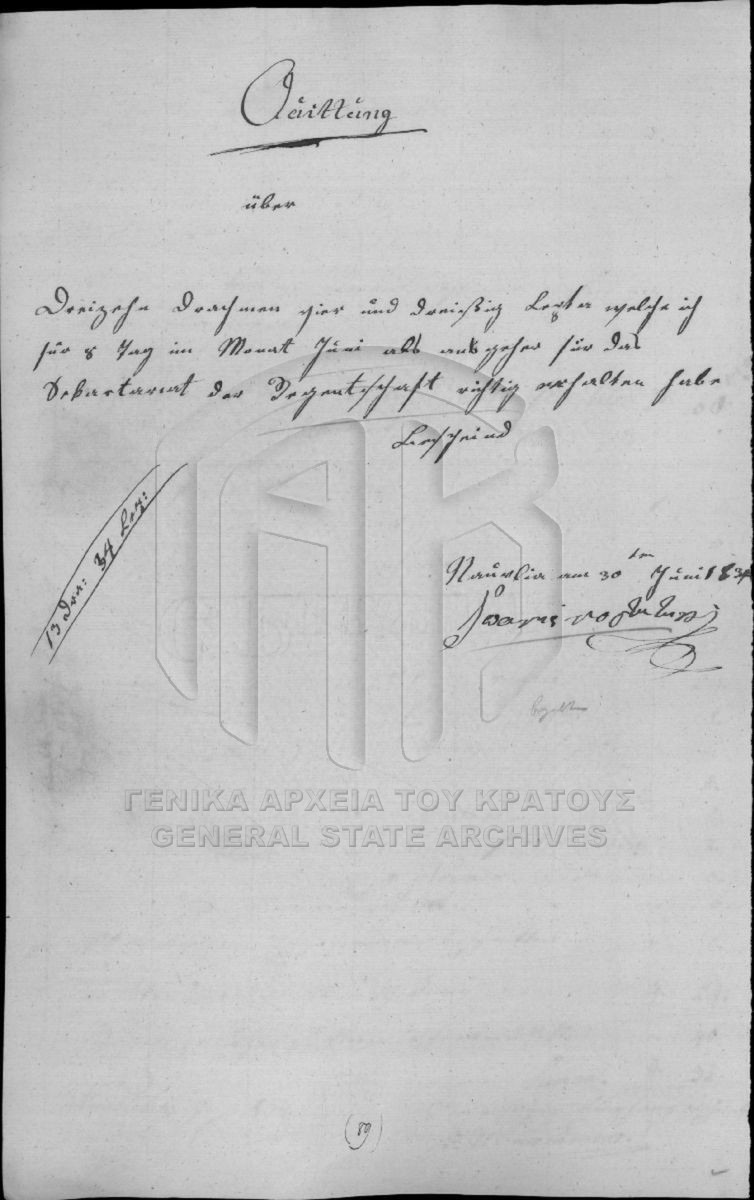 Quittung
über
Dreizehn Drachmen vier und dreißig Lepta welche ich
für 8 Tag im Monat Juni als ausgeher für das
Sekartariat der Regentschaft richtig erhalten habe
Bescheind
13 Dra: 34 Lep:
Nauplia am 30ten Juni 1834
ΓΕΝΙΚΑ ΑΡΧΕΙΑ ΤΟΥ ΚΡΑΤΟΥΣ
GENERAL STATE ARCHIVES
(89)